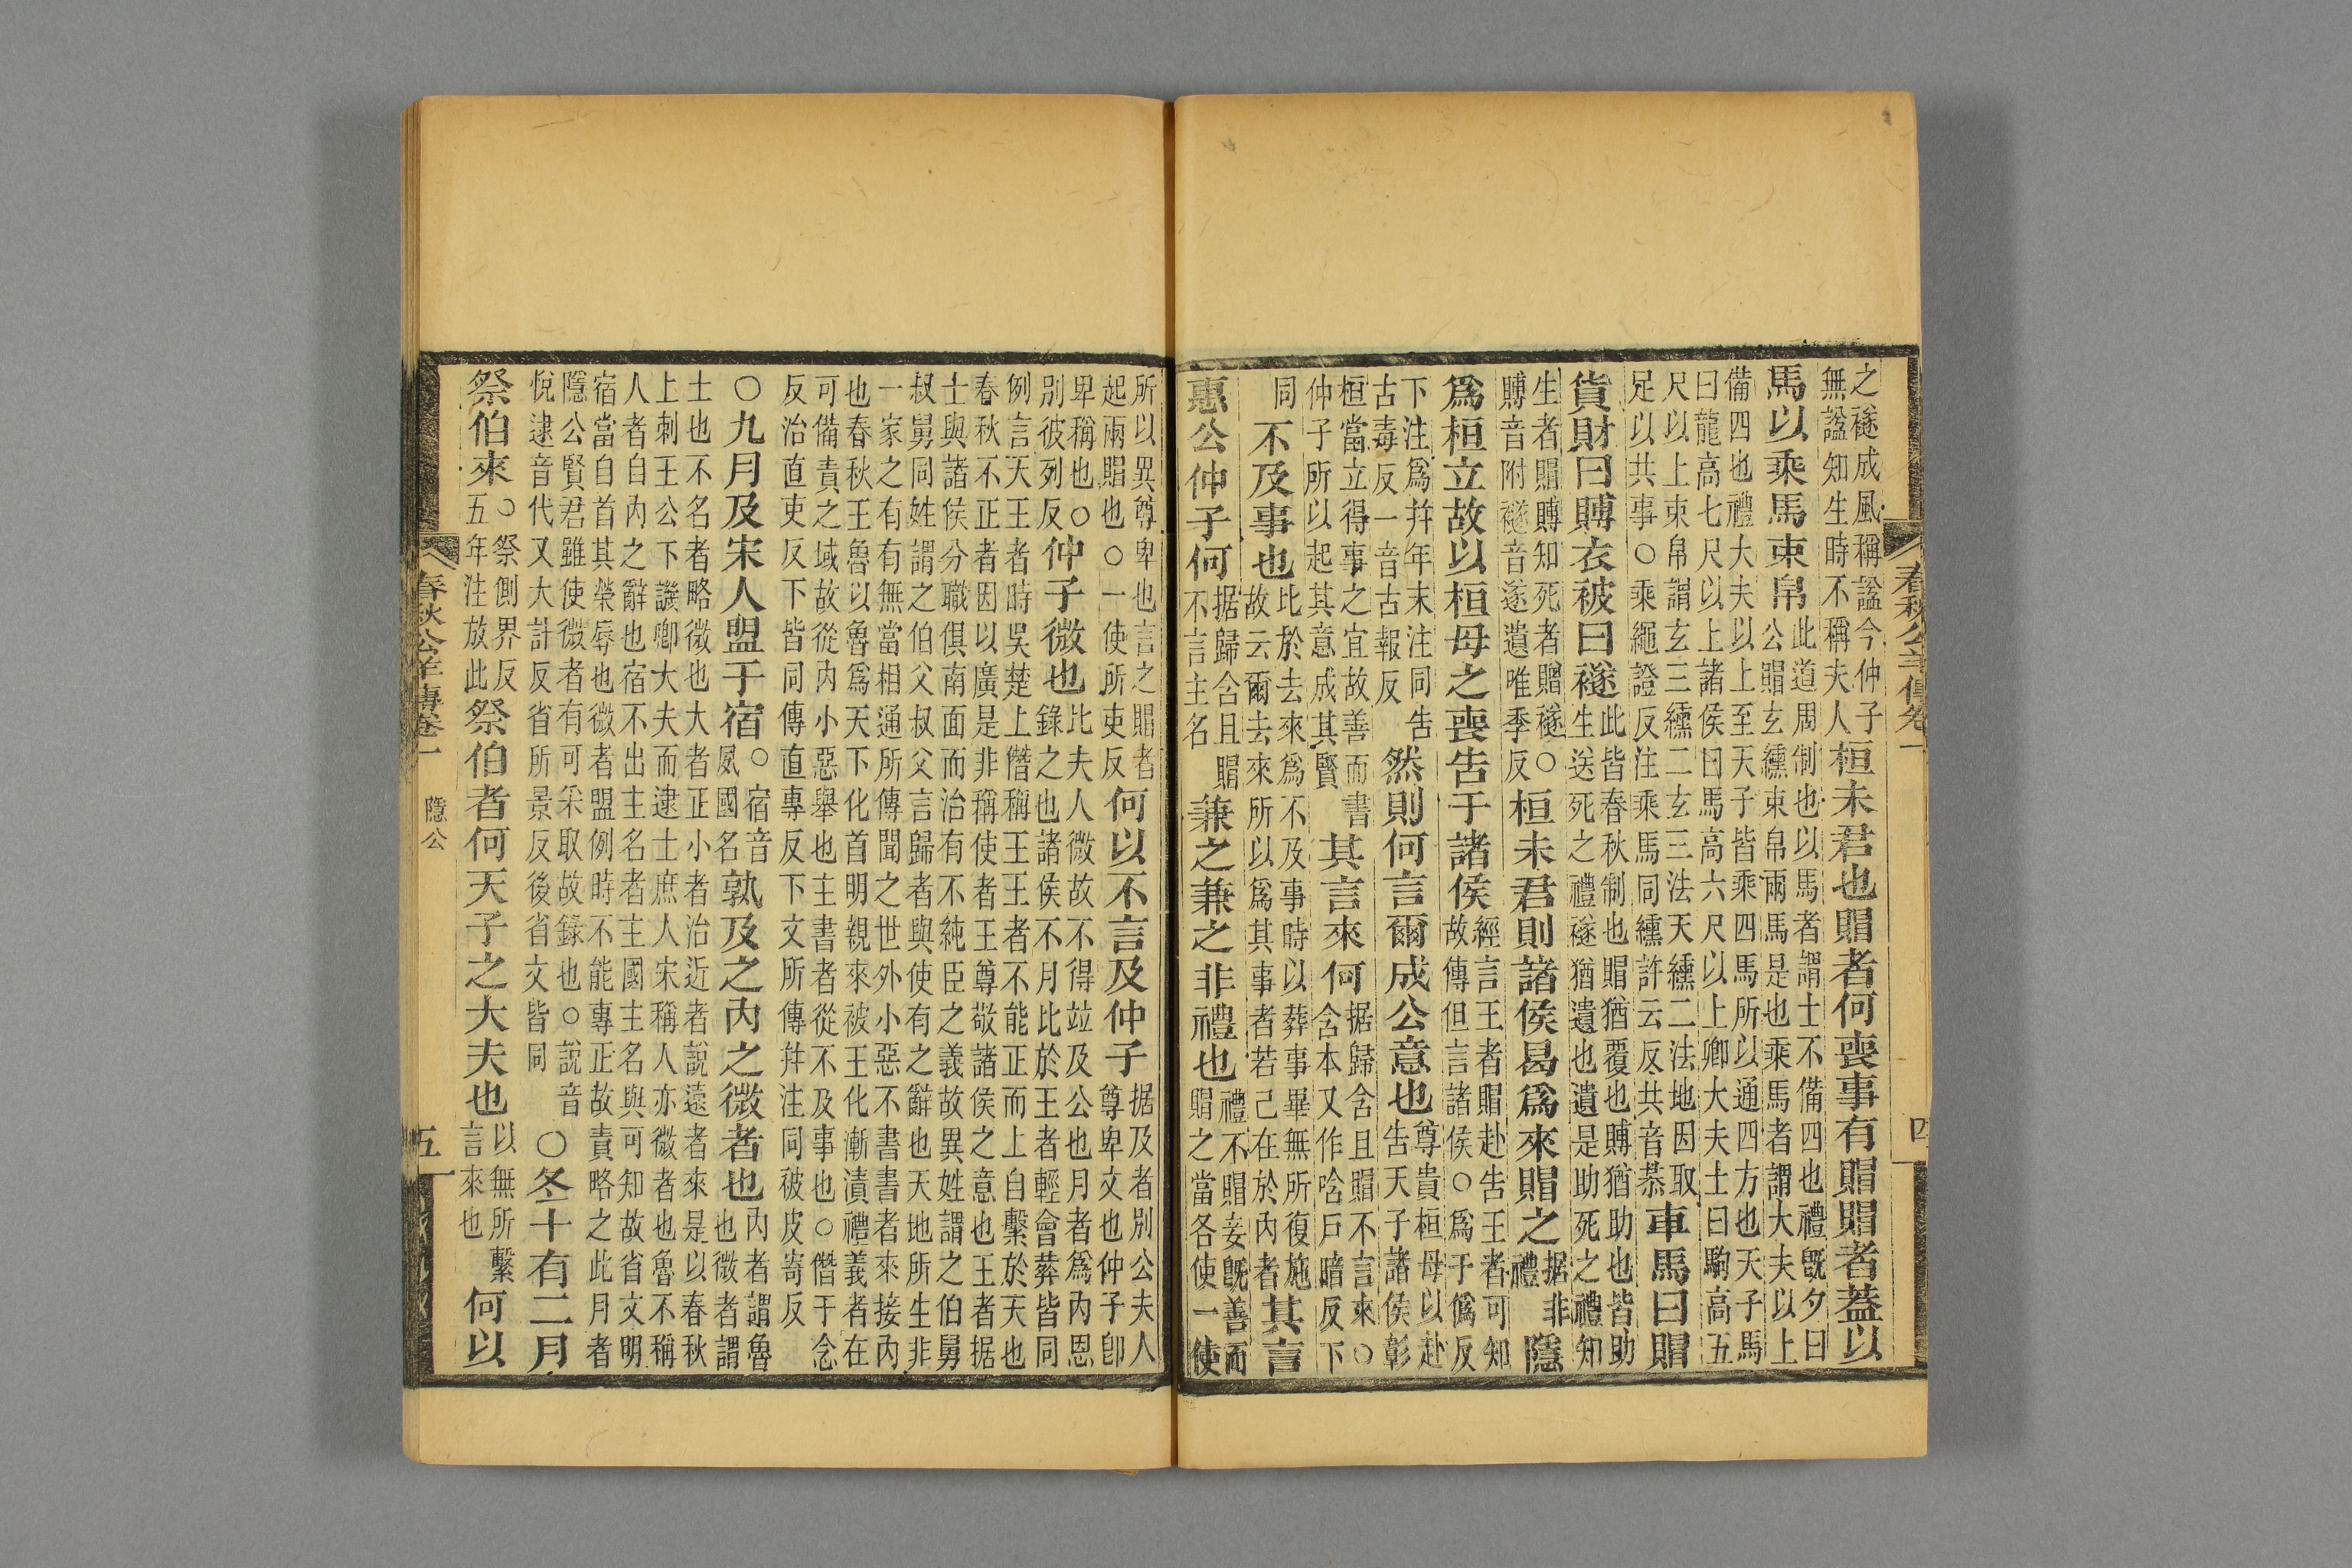 春秋公羊傳卷一
四
之襚成風稱諡今仲子
無諡知生時不稱夫人
桓未君也賵者何喪事有賵賵者蓋以
馬以乘馬束帛
此道周制也以馬者謂士不備四也禮既夕曰
公賵玄纁束帛兩馬是也乘馬者謂大夫以上
備四也禮大夫以上至天子皆乘四馬所以通四方也天子馬
曰龍高七尺以上諸侯曰馬高六尺以上卿大夫士曰駒高五
尺以上束帛謂玄三纁二玄三法天纁二法地因取
足以共事○乘繩證反注乘馬同纁許云反共音恭
車馬曰賵
貨財曰賻衣被曰襚
此皆春秋制也賵猶覆也賻猶助也皆助
生送死之禮襚猶遺也遺是助死之禮知
生者賵賻知死者贈襚○
賻音附襚音遂遺唯季反
桓未君則諸侯曷爲來賵之
据非
禮
隱
爲桓立故以桓母之喪告于諸侯
經言王者賵赴告王者可知
故傳但言諸侯○爲于僞反
下注爲幷年末注同告
古毒反一音古報反
然則何言爾成公意也
尊貴桓母以赴
告天子諸侯彰
桓當立得事之宜故善而書
仲子所以起其意成其賢
其言來何
据歸含且賵不言來○
含本又作唅戶暗反下
同
不及事也
比於去來爲不及事時以葬事畢無所復施
故云爾去來所以爲其事者若己在於內者
其言
惠公仲子何
据歸含且賵
不言主名
兼之兼之非禮也
禮不賵妾既善而
賵之當各使一使
所以異尊卑也言之賵者
起兩賵也○一使所吏反
何以不言及仲子
据及者別公夫人
尊卑文也仲子卽
卑稱也○
別彼列反
仲子微也
比夫人微故不得竝及公也月者爲內恩
錄之也諸侯不月比於王者輕會葬皆同
例言天王者時吳楚上僭稱王王者不能正而上自繫於天也
春秋不正者因以廣是非稱使者王尊敬諸侯之意也王者据
士與諸侯分職俱南面而治有不純臣之義故異姓謂之伯舅
叔舅同姓謂之伯父叔父言歸者與使有之辭也天地所生非
一家之有有無當相通所傳聞之世外小惡不書書者來接內
也春秋王魯以魯爲天下化首明親來被王化漸漬禮義者在
可備責之域故從內小惡舉也主書者從不及事也○僭子念
反治直吏反下皆同傳直專反下文所傳幷注同被皮寄反
○九月及宋人盟于宿
○宿音
夙國名
孰及之內之微者也
內者謂魯
也微者謂
士也不名者略微也大者正小者治近者說遠者來是以春秋
上刺王公下譏卿大夫而逮士庶人宋稱人亦微者也魯不稱
人者自內之辭也宿不出主名者主國主名與可知故省文明
宿當自首其榮辱也微者盟例時不能專正故責略之此月者
隱公賢君雖使微者有可采取故錄也○說音
悅逮音代又大計反省所景反後省文皆同
○冬十有二月
祭伯來
○祭側界反
五年注放此
祭伯者何天子之大夫也
以無所繫
言來也
何以
春秋公羊傳卷一
隱公
五